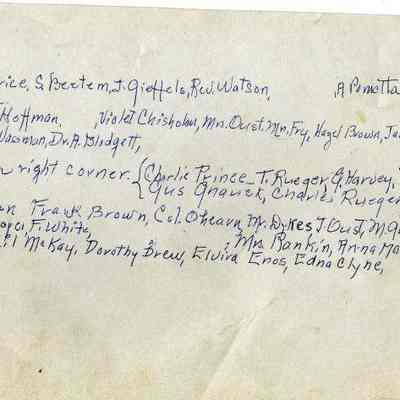 rice, S. Bertem, J. Gieffels, Rev. Watson, A Pomatta
Hoffman, Violet Chisholm, Mrs. Oust, Mr. Fry, Hazel Brown, Ja
Wasman, Dr. A. Blodgett,
w right corner. { Charlie Prince, T. Rueger, G. Harvey,
Gus Gnauck, Charles Rueger
Frank Brown, Col. Ohearn, Mr. Dykes, J. Oust, M. G
F. White,
McKay, Dorothy Drew, Elvira Enos, Edna Clyne,
Mrs. Rankin, Anna Ma